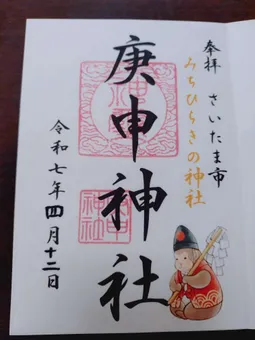 奉拝 さいたま市
みちひらきの神社
庚申神社
令和七年四月十二日